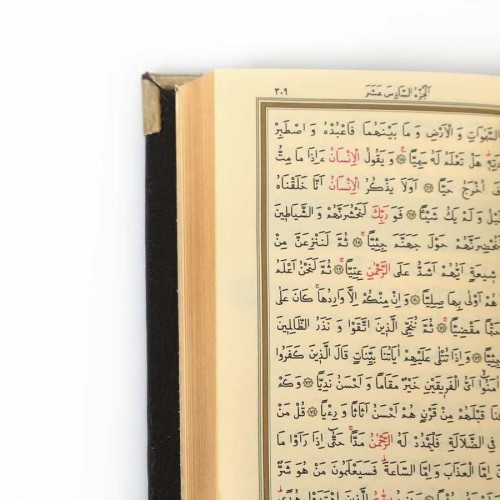 ٣٠٩ الجزء السادس عشر
السَّمٰوَاتِ وَ الْاَرْضِ وَ مَا بَيْنَهُمَا فَاعْبُدْهُ وَ اصْطَبِرْ
هَلْ تَعْلَمُ لَهُ سَمِيًّا ۝٦٥ وَ يَقُولُ الْاِنْسَانُ ءَاِذَا مَا مِتُّ
اُخْرَجُ حَيًّا ۝٦٦ اَوَلَا يَذْكُرُ الْاِنْسَانُ اَنَّا خَلَقْنَاهُ
وَ لَمْ يَكُ شَيْئًا ۝٦٧ فَوَ رَبِّكَ لَنَحْشُرَنَّهُمْ وَ الشَّيَاطِينَ
لَنُحْضِرَنَّهُمْ حَوْلَ جَهَنَّمَ جِثِيًّا ۝٦٨ ثُمَّ لَنَنْزِعَنَّ مِنْ
شِيعَةٍ اَيُّهُمْ اَشَدُّ عَلَى الرَّحْمٰنِ عِتِيًّا ۝٦٩ ثُمَّ لَنَحْنُ اَعْلَمُ
هُمْ اَوْلٰى بِهَا صِلِيًّا ۝٧٠ وَ اِنْ مِنْكُمْ اِلَّا وَارِدُهَا كَانَ عَلٰى
حَتْمًا مَقْضِيًّا ۝٧١ ثُمَّ نُنَجِّي الَّذِينَ اتَّقَوْا وَ نَذَرُ الظَّالِمِينَ
جِثِيًّا ۝٧٢ وَ اِذَا تُتْلٰى عَلَيْهِمْ اٰيَاتُنَا بَيِّنَاتٍ قَالَ الَّذِينَ كَفَرُوا
اٰمَنُوا اَيُّ الْفَرِيقَيْنِ خَيْرٌ مَقَامًا وَ اَحْسَنُ نَدِيًّا ۝٧٣ وَ كَمْ
قَبْلَهُمْ مِنْ قَرْنٍ هُمْ اَحْسَنُ اَثَاثًا وَ رِءْيًا ۝٧٤ قُلْ مَنْ
فِي الضَّلَالَةِ فَلْيَمْدُدْ لَهُ الرَّحْمٰنُ مَدًّا حَتّٰى اِذَا رَاَوْا مَا
اِمَّا الْعَذَابَ وَ اِمَّا السَّاعَةَ فَسَيَعْلَمُونَ مَنْ هُوَ شَرٌّ